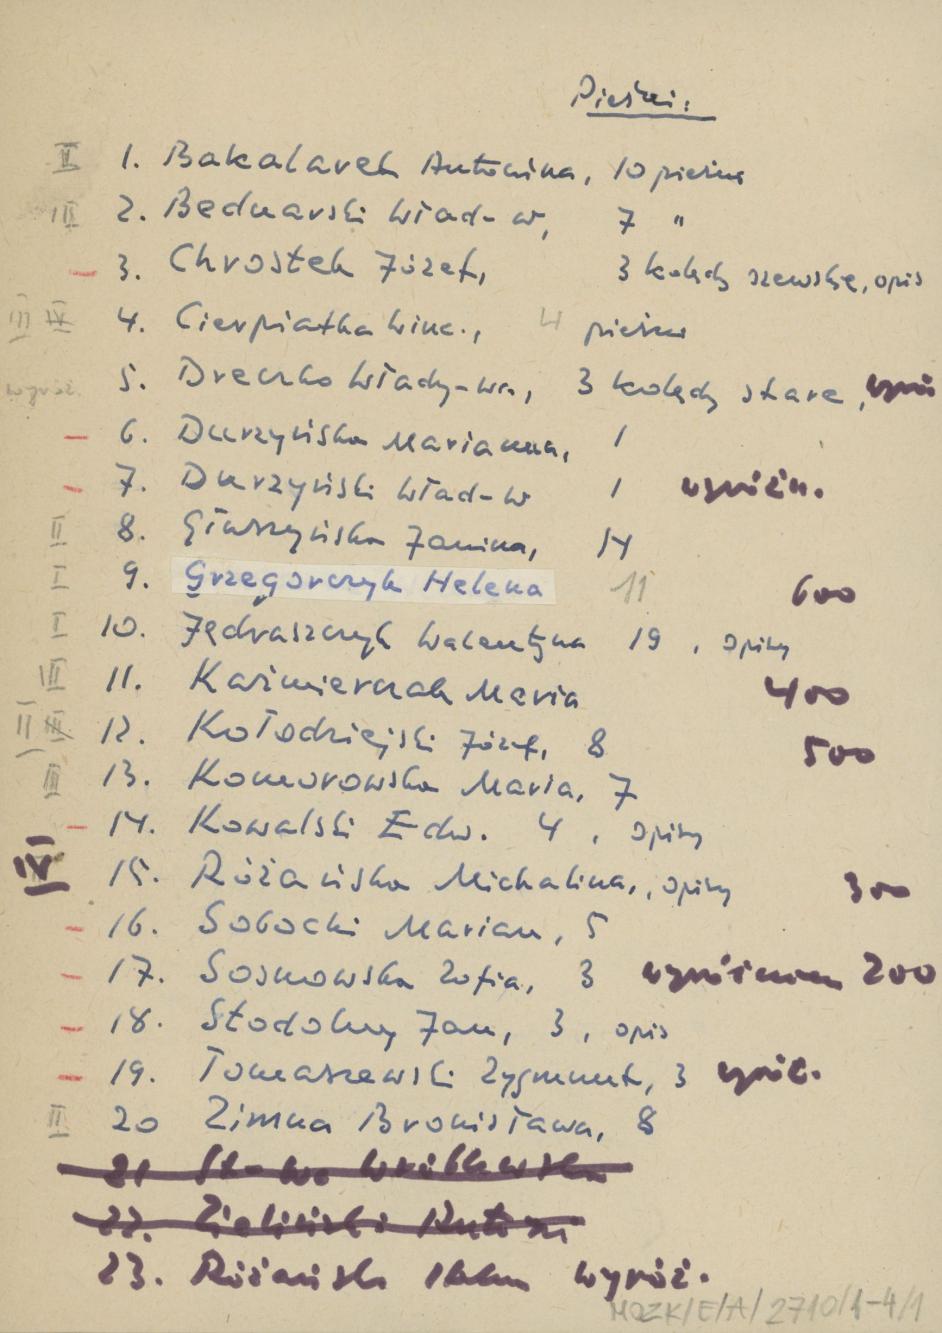 Pieśni:
II 1. Bakalarek Antonina, 10 pieśni
III 2. Bednarski Wład-w, 7 "
— 3. Chrostek Józef, 3 kolędy szewskie, opis
III IV 4. Cierpiatka Winc., 4 pieśni
wyróż. 5. Dreczko Włady-wa, 3 kolędy stare, wyróż
— 6. Durzyńska Marianna, 1
— 7. Durzyński Wład-w 1 wyróżn.
II 8. Głuszyńska Janina, 14
I 9. Grzegorczyk Helena 11 600
I 10. Jędraszczyk Walentyna 19, opisy
III 11. Kaźmierczak Maria 400
II III 12. Kołodziejski Józef, 8 500
III 13. Komorowska Maria, 7
— 14. Kowalski Edw. 4, opisy
IV 15. Różańska Michalina, opisy 300
— 16. Sobocki Marian, 5
— 17. Sosnowska Zofia, 3 wyróżnienie 200
— 18. Stodolny Jan, 3, opis
— 19. Tomaszewski Zygmunt, 3 wyróż.
II 20 Zimna Bronisława, 8
21 St-wa Wróblewska
22. Zieliński Antoni
23. Różańsk wyróż.
MOZK/E/A/2710/1-4/1